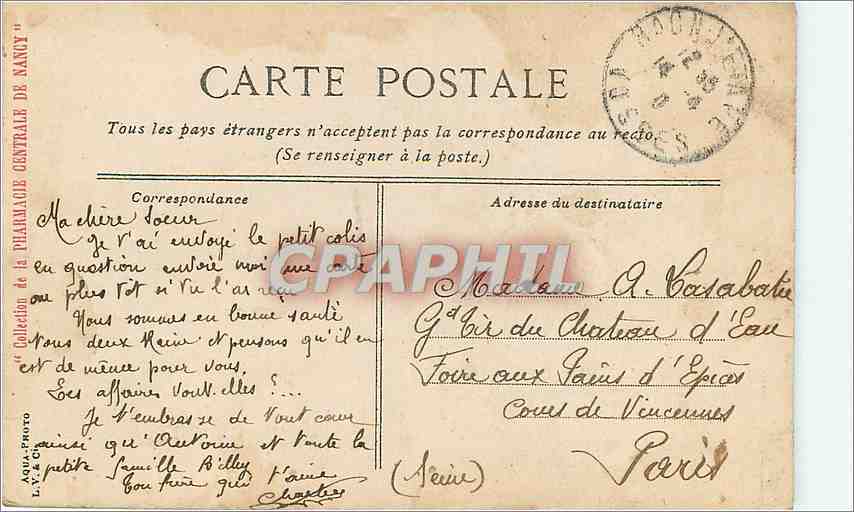 CARTE POSTALE
Tous les pays étrangers n'acceptent pas la correspondance au recto.
(Se renseigner à la poste.)
Correspondance
Ma chère soeur
Je t'ai envoyé le petit colis
en question envoie moi une carte
au plus tot si tu l'as reçu
Nous sommes en bonne santé
tous deux Reine et pensons qu'il en
est de même pour vous.
Les affaires vont-elles ?...
Je t'embrasse de tout coeur
ainsi qu'Antoine et toute la
petite famille Billy
Ton frère qui t'aime
Charles
Adresse du destinataire
Madame A. Casabatie
Gd Tir du Chateau d'Eau
Foire aux Pains d'Epices
Cours de Vincennes
Paris
(Seine)
"Collection de la PHARMACIE CENTRALE DE NANCY"
AQUA-PHOTO
L.V. & Cie
CPAPHIL
VOSGES